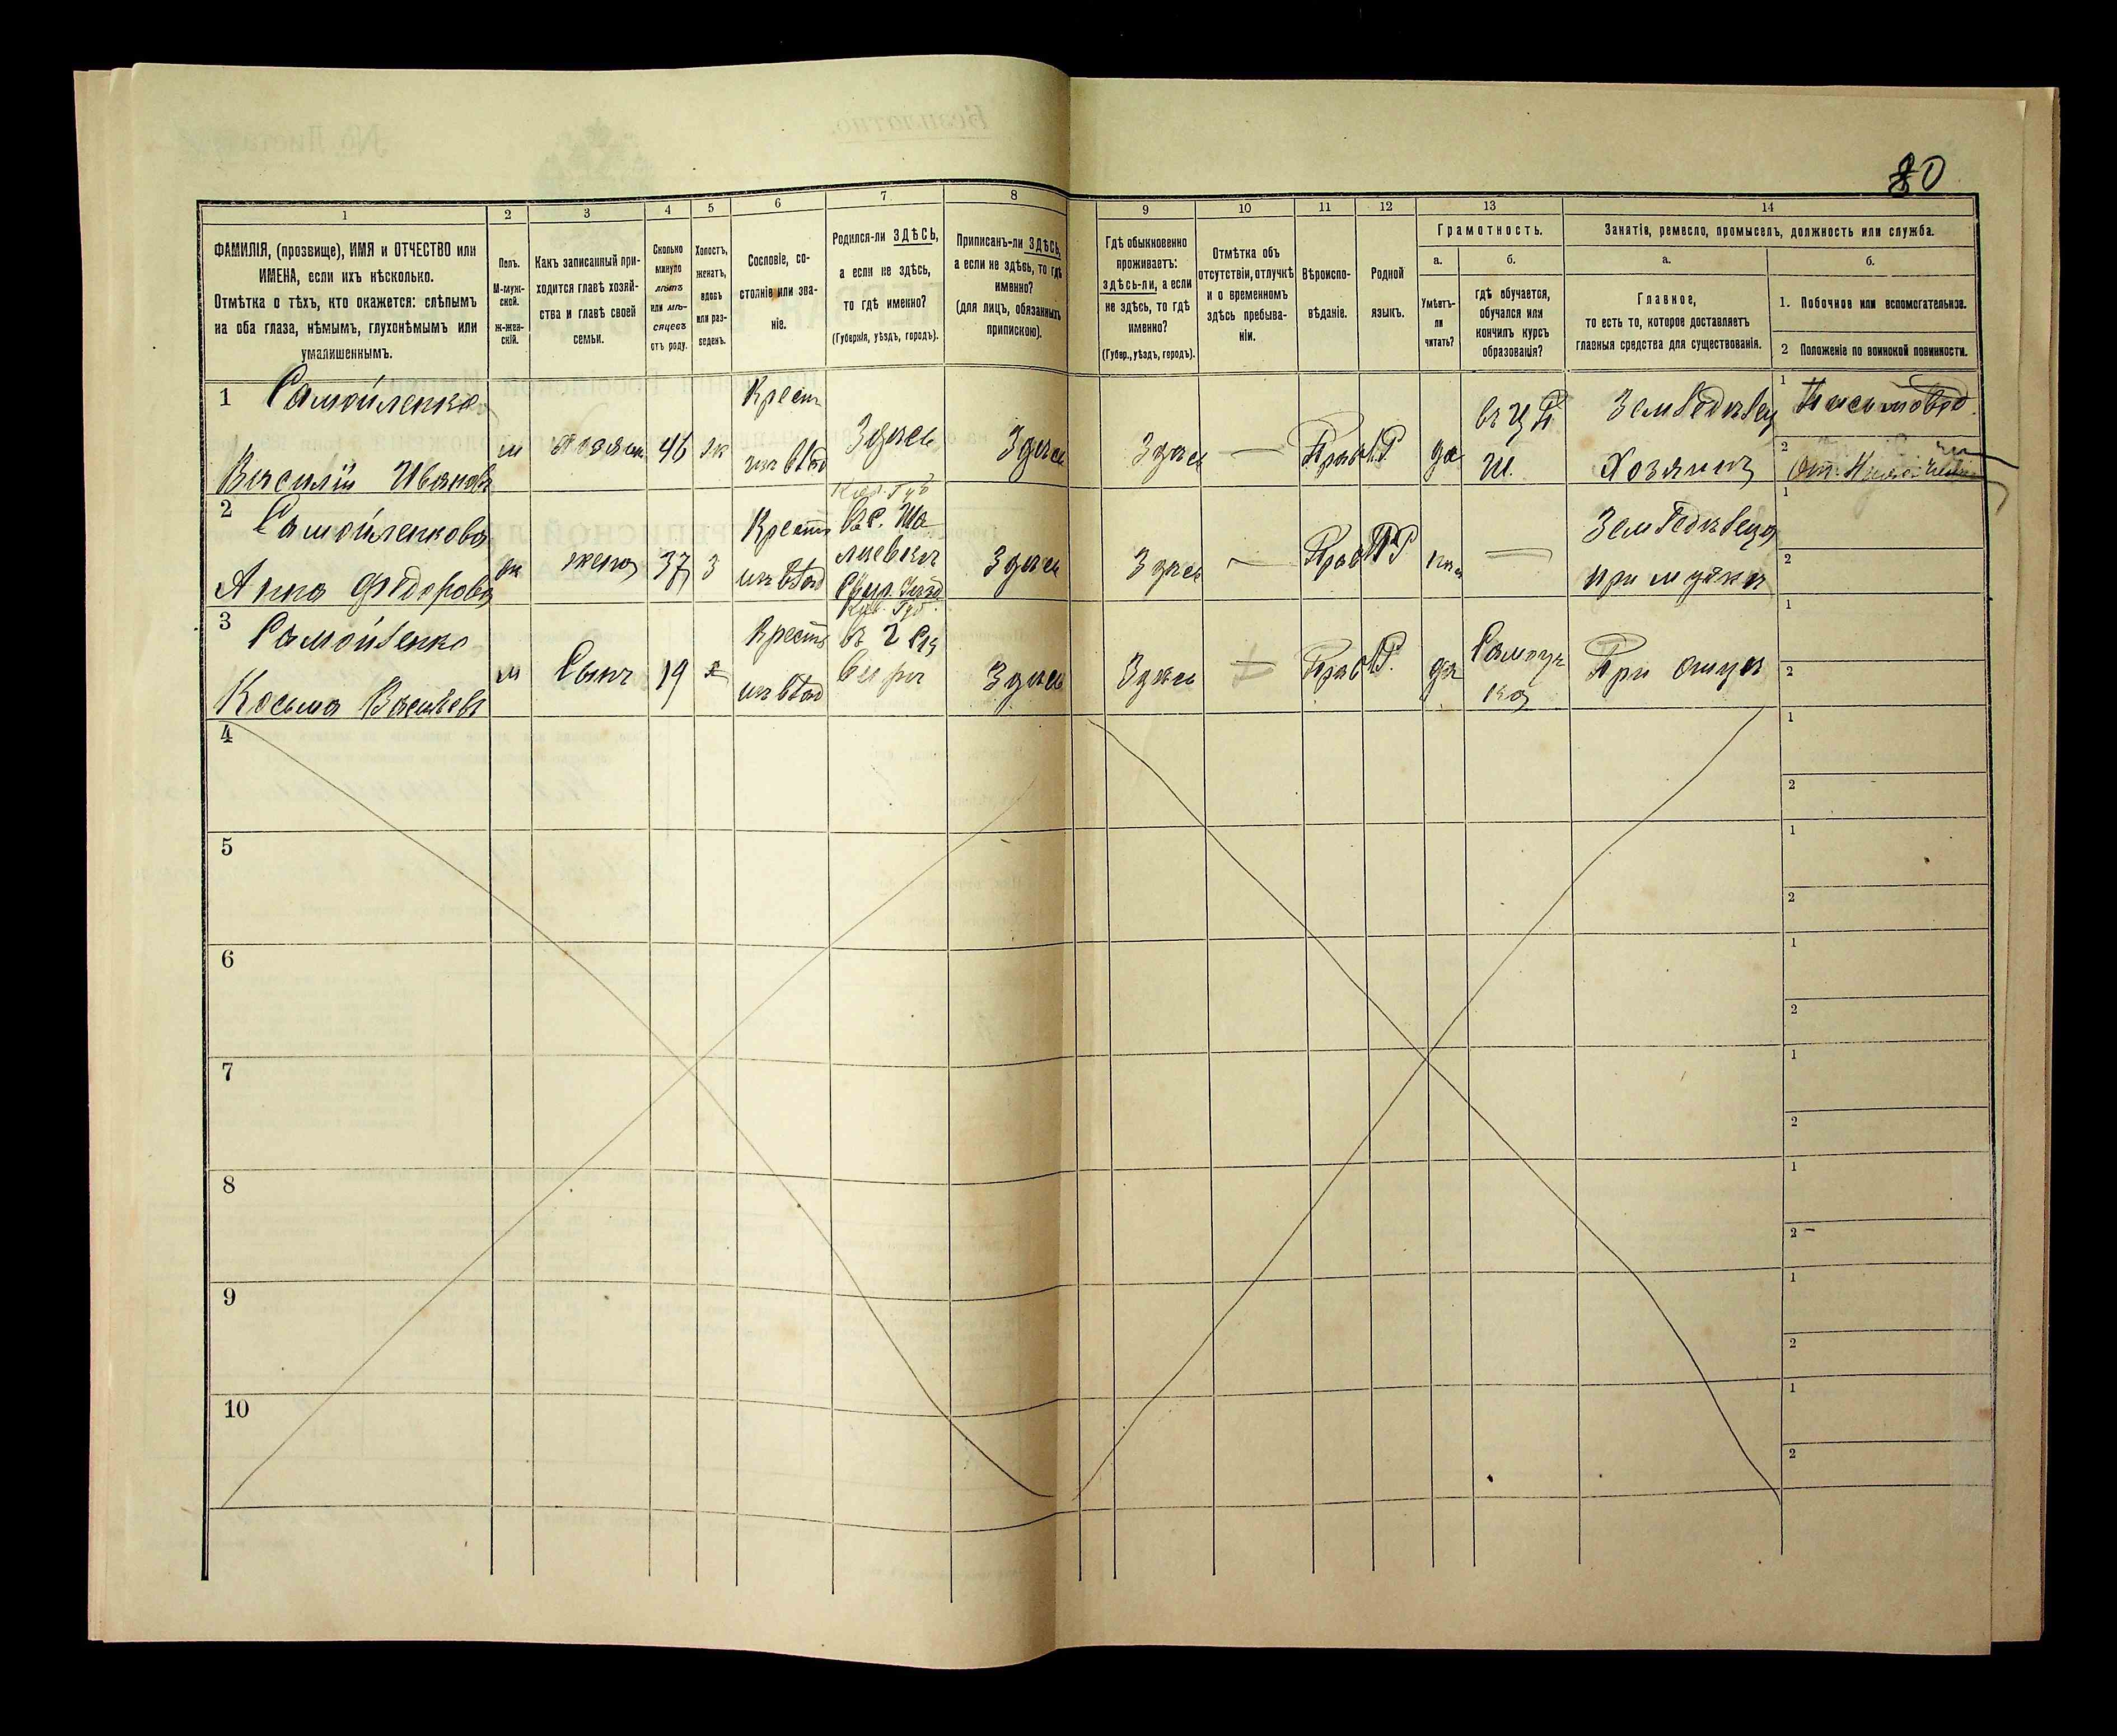 80
1 2 3 4 5 6 7 8 9 10 11 12 13 14
ФАМИЛІЯ, (прозвище), ИМЯ и ОТЧЕСТВО или
ИМЕНА, если ихъ нѣсколько.
Отмѣтка о тѣхъ, кто окажется: слѣпымъ
на оба глаза, нѣмымъ, глухонѣмымъ или
умалишеннымъ.
Полъ.
М-муж-
ской.
ж-жен-
скій.
Какъ записанный при-
ходится главѣ хозяй-
ства и главѣ своей
семьи.
Сколько
минуло
лѣтъ
или мѣ-
сяцевъ
отъ роду.
Холостъ,
женатъ,
вдовъ
или раз-
веденъ.
Сословіе, со-
стояніе или зва-
ніе.
Родился-ли ЗДѢСЬ,
а если не здѣсь,
то гдѣ именно?
(Губернія, уѣздъ, городъ).
Приписанъ-ли ЗДѢСЬ,
а если не здѣсь, то гдѣ
именно?
(для лицъ, обязанныхъ
припискою).
Гдѣ обыкновенно
проживаетъ:
здѣсь-ли, а если
не здѣсь, то гдѣ
именно?
(Губер., уѣздъ, городъ).
Отмѣтка объ
отсутствіи, отлучкѣ
и о временномъ
здѣсь пребыва-
ніи.
Вѣроиспо-
вѣданіе.
Родной
языкъ.
Грамотность.
а.
Умѣетъ-
ли
читать?
б.
гдѣ обучается,
обучался или
кончилъ курсъ
образованія?
Занятія, ремесло, промыселъ, должность или служба.
а.
Главное,
то есть то, которое доставляетъ
главныя средства для существованія.
б.
1. Побочное или вспомогательное.
2 Положеніе по воинской повинности.
1 Самойленко Крест 1
Василій Ивановъ м Хозяин 46 ж изъ влад Здѣсь Здѣсь Здѣсь — Прав М.Р да въ Ц П Ш. Земледѣлец Хозяинъ 2
2 Самойленкова Крестъ Кіев. Губ 1
Анна Федорова ж жена 37 З изъ влад Здѣсь Здѣсь — Прав М Р Земледѣлецъ при мужѣ 2
3 Самойленко Крестъ Кіев. Губ. 1
Косьма Васильевъ м Сынъ 19 х изъ влад Здѣсь Здѣсь Прав М.Р. да Самоуч ка При отцѣ 2
4 1
2
5 1
2
6 1
2
7 1
2
8 1
2
9 1
2
10 1
2